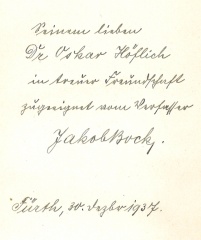 Seinem lieben
Dr Oskar Höflich
in treuer Freundschaft
zugeeignet vom Verfasser
Jakob Bock.
Fürth, 30. Dezbr 1937.